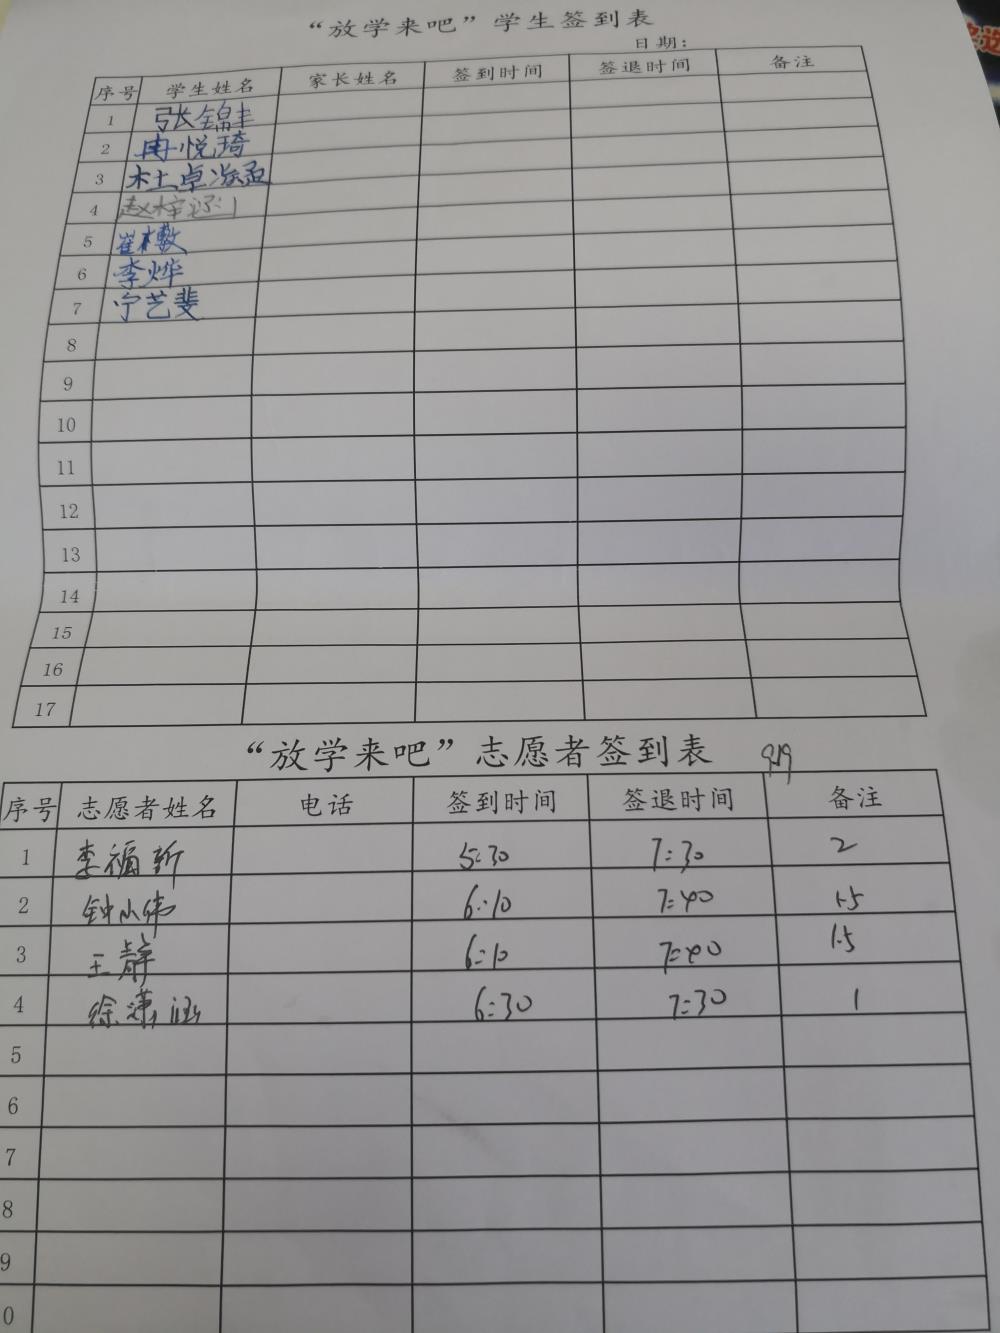 “放学来吧”学生签到表
日期：
序号 学生姓名 家长姓名 签到时间 签退时间 备注
1 张锦丰
2 冉悦琦
3 杜卓泓孟
4 赵梓
5 崔 
6 李烨
7 宁艺斐
8
9
10
11
12
13
14
15
16
17
“放学来吧”志愿者签到表 9.19
序号 志愿者姓名 电话 签到时间 签退时间 备注
1 李福新 5:30 7:30 2
2 钟小伟 6:10 7:40 1.5
3 王静 6:10 7:40 1.5
4 徐潇涵 6:30 7:30 1
5
6
7
8
9
0